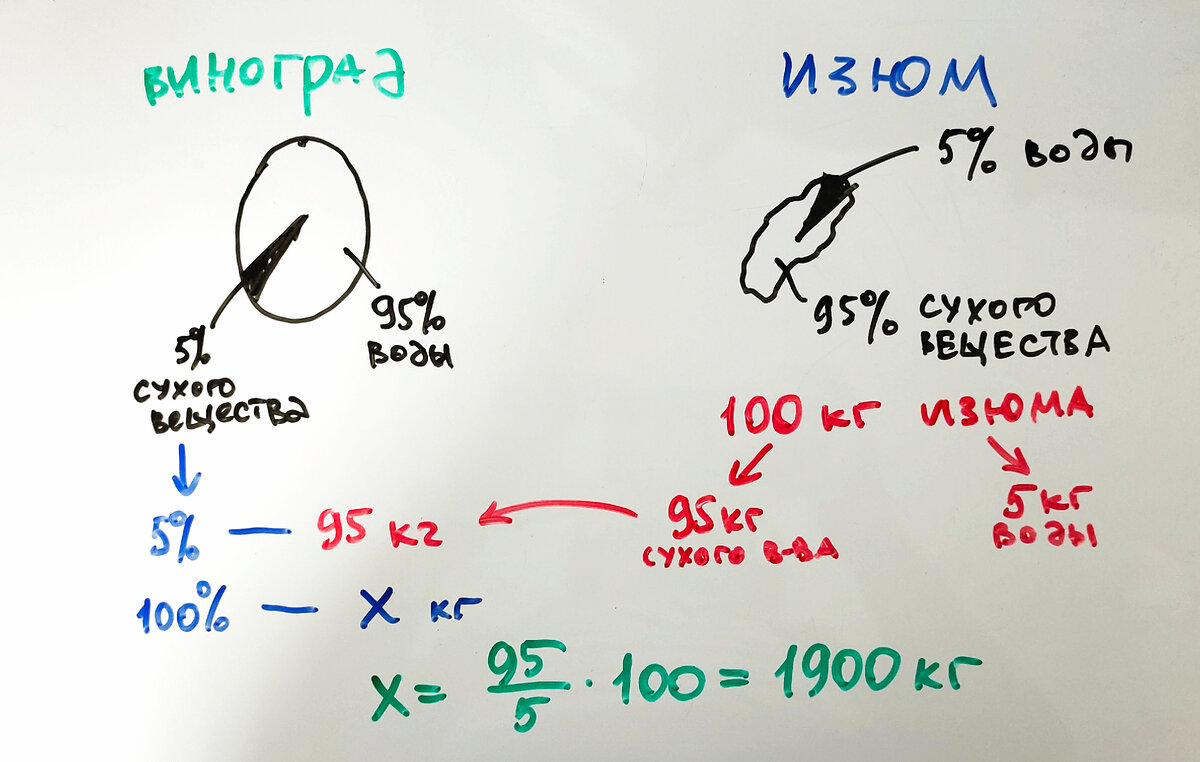 ВИНОГРАД
ИЗЮМ
5% ВОДЫ
95%
ВОДЫ
5%
СУХОГО
ВЕЩЕСТВА
95% СУХОГО
ВЕЩЕСТВА
100 кг ИЗЮМА
95 кг
СУХОГО В-ВА
5 кг
ВОДЫ
5% — 95 кг
100% — X кг
X = 95/5 · 100 = 1900 кг